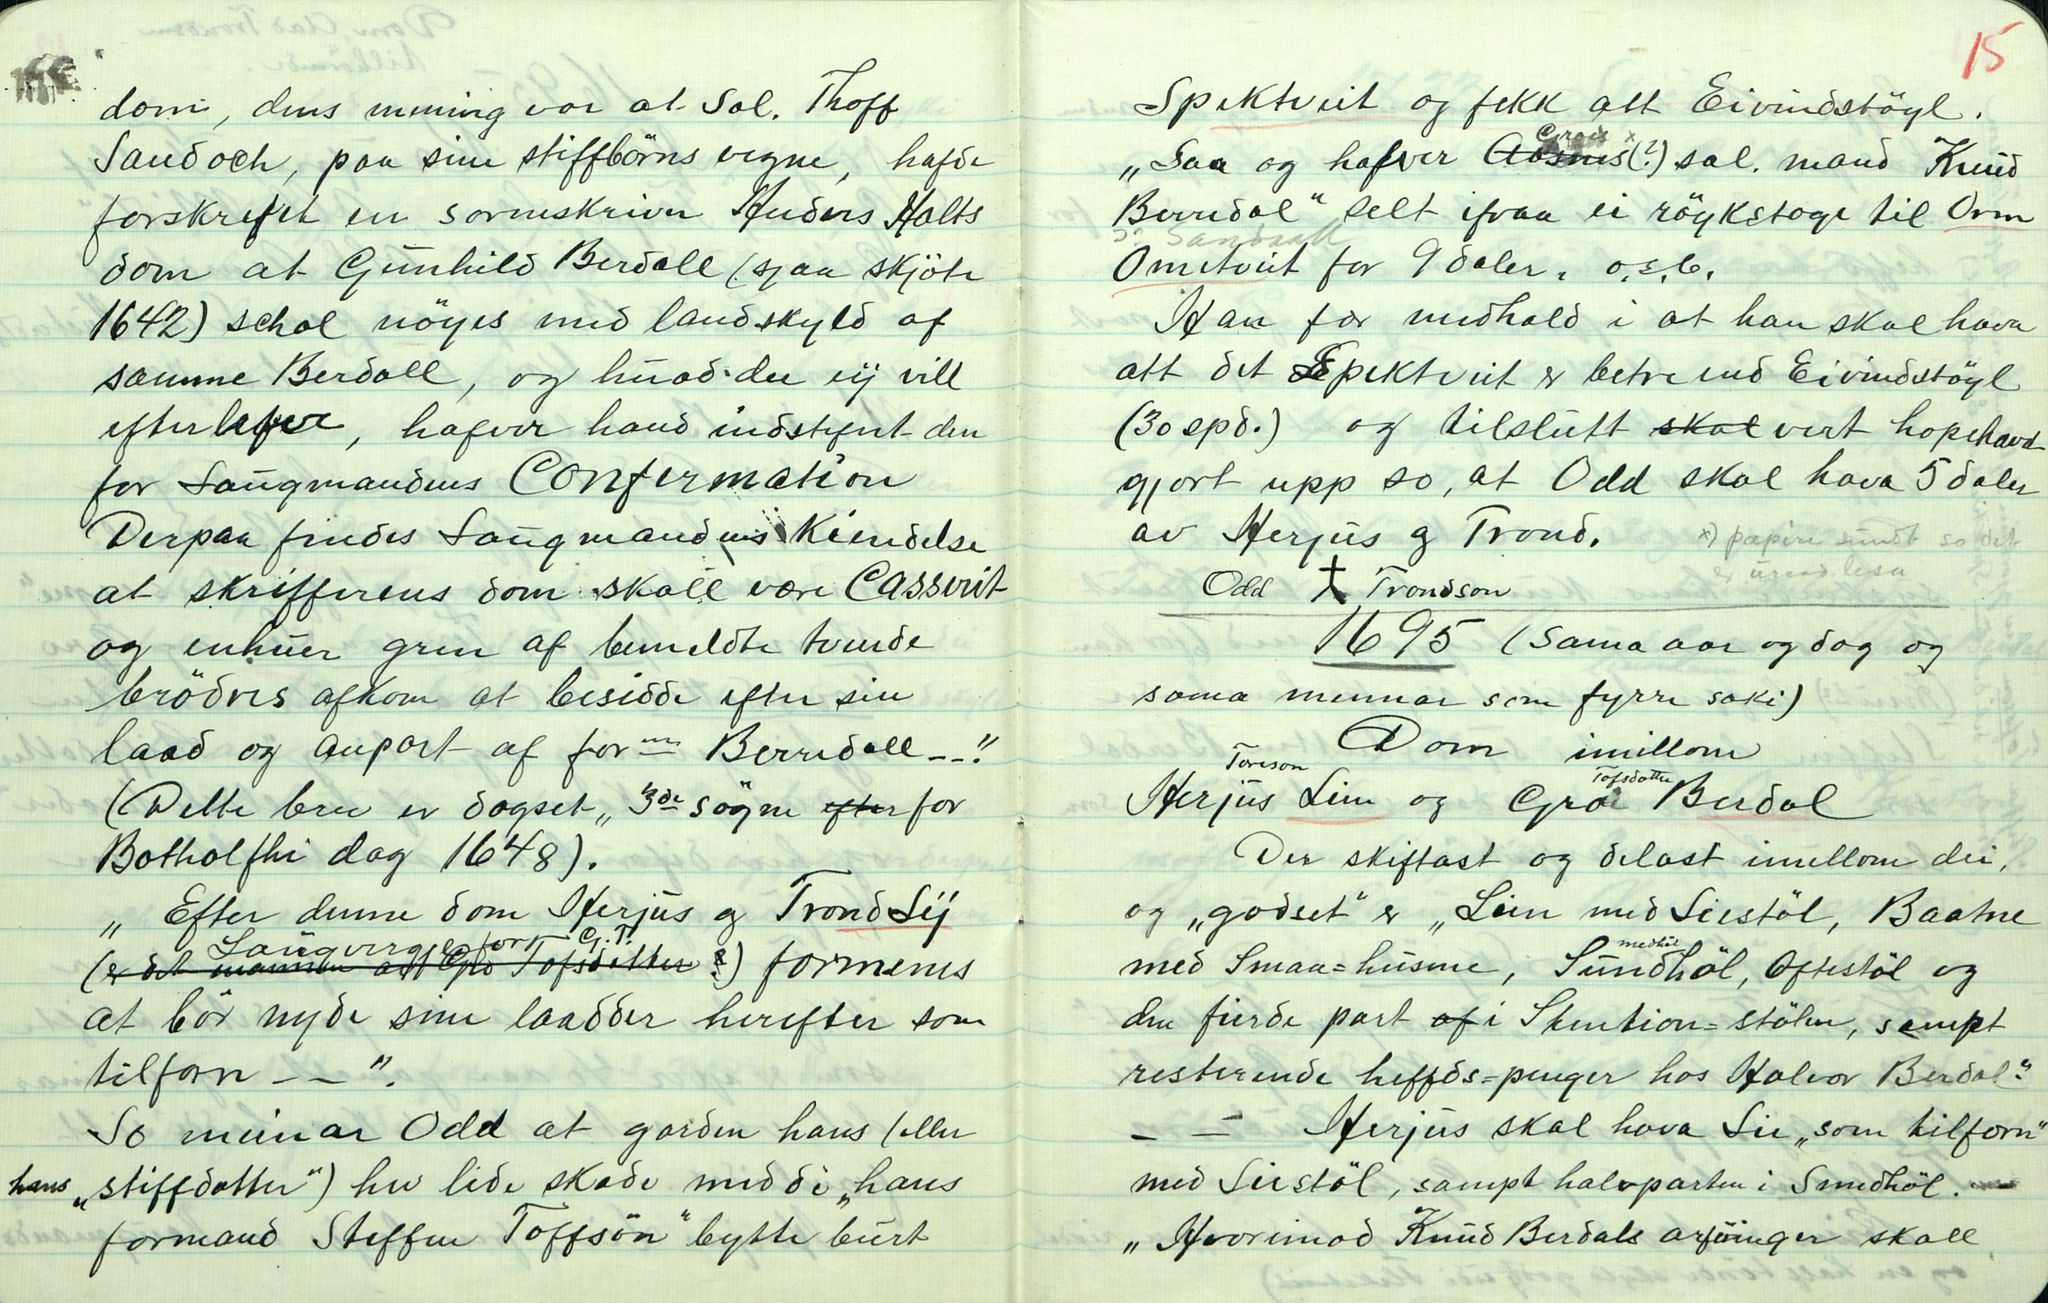 dom, dens mening var at Sal. Thoff
Sandoch, paa sine stiffbörns vegne, hafde
forskrefet en sorenskriver Anders Holts
dom at Gunhild Berdall (sjaa skjöte
1642) schal nöyes med landskyld af
samme Berdall, og huad der eij vill
efterlefve, hafver hand indstefnt den
for Laugmandens Confermation
Derpaa findes Laugmandens Kiendelse
at skrifferens dom skall være Casserit
og enhuer gren af bemeldte tvende
brödres afkom at besidde efter sin
laad og anpart af for^nn Berredall --".
(Dette brev er dagset „3de sögne efter for
Botholfhi dag 1648).
„Efter denne dom Herjus og Trond Lij
Laugverge for G. T.
(er det mannen att Gro Tofsdatter?) formenes
at bör nyde sine laadder herefter som
tilforn --".
So meinar Odd at garden hans (eller
hans „stiffdatter") hev lide skade med di „hans
formand Steffen Toffsön" bytte burt
15
Spektveit og fekk att Eivindstöyl.
Groes x
„Saa og hafver Aasnes (?) sal. mand Knud
Berredal" selt ifraa ei röykstoge til Orm
ɔ: Sandaak
Ometveit for 9 daler. o.s.b.
Han fær medhald i at han skal hava
att det Spektveit er betre end Eivindstöyl
(30 spd.) og tilslutt skal vert hopehavd
gjort upp so, at Odd skal hava 5 daler
av Herjus og Trond.
x) papire sundt so det
er uraad lesa
Odd ☩ Trondson
1695 (sama aar og dag og
sama mennar som fyrre saki)
Dom imillom
Toreson Tofsdatter
Herjus Lien og Groe Berdal
Der skiftast og delast imellom dei,
og „godset" er „Lien med Liestöl, Baatne
medhöl
med Smaa=husene, Sundhöl, Oftestöl og
den fierde part af i Skention=stölen, sampt
resterende heffds=penger hos Halvor Berdal".
- - Herjus skal hava Lie „som tilforn"
med Liestöl, sampt halvparten i Smedhöl. -
„Hvorimod Knud Berdals arfvinger skall